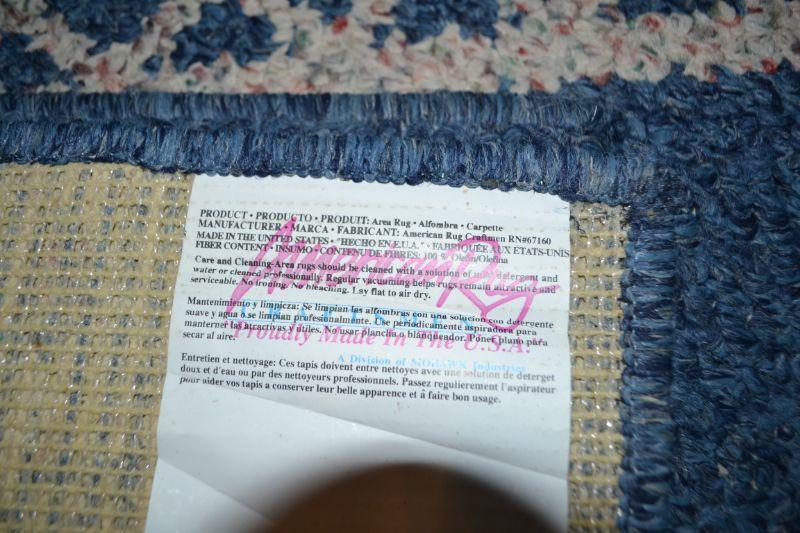 PRODUCT • PRODUCTO • PRODUIT: Area Rug • Alfombra • Carpette
MANUFACTURER • MARCA • FABRICANT: American Rug Craftmen RN#67160
MADE IN THE UNITED STATES • "HECHO EN E.U.A." • FABRIQUÉE AUX ETATS-UNIS
FIBER CONTENT • INSUMO, CONTENU DE FIBRES: 100 % Olefin/Olefina
American Rug
Care and Cleaning-Area rugs should be cleaned with a solution of mild detergent and
water or cleaned professionally. Regular vacuuming helps rugs remain attractive and
serviceable. No ironing. No bleaching. Lay flat to air dry.
CRAFTSMEN
Mantenimiento y limpieza: Se limpian las alfombras con una solucion con detergente
suave y agua o se limpian profesionalmente. Use periodicamente aspiradora para
manterner las atractivas y utiles. No usar plancha o blanqueador. Poner plano para
secar al aire.
Proudly Made In The U.S.A.
A Division of MOHAWK Industries
Entretien et nettoyage: Ces tapis doivent entre nettoyes avec une solution de deterget
doux et d'eau ou par des nettoyeurs professionnels. Passez regulierement l'aspirateur
pour aider vos tapis a conserver leur belle apparence et à faire bon usage.